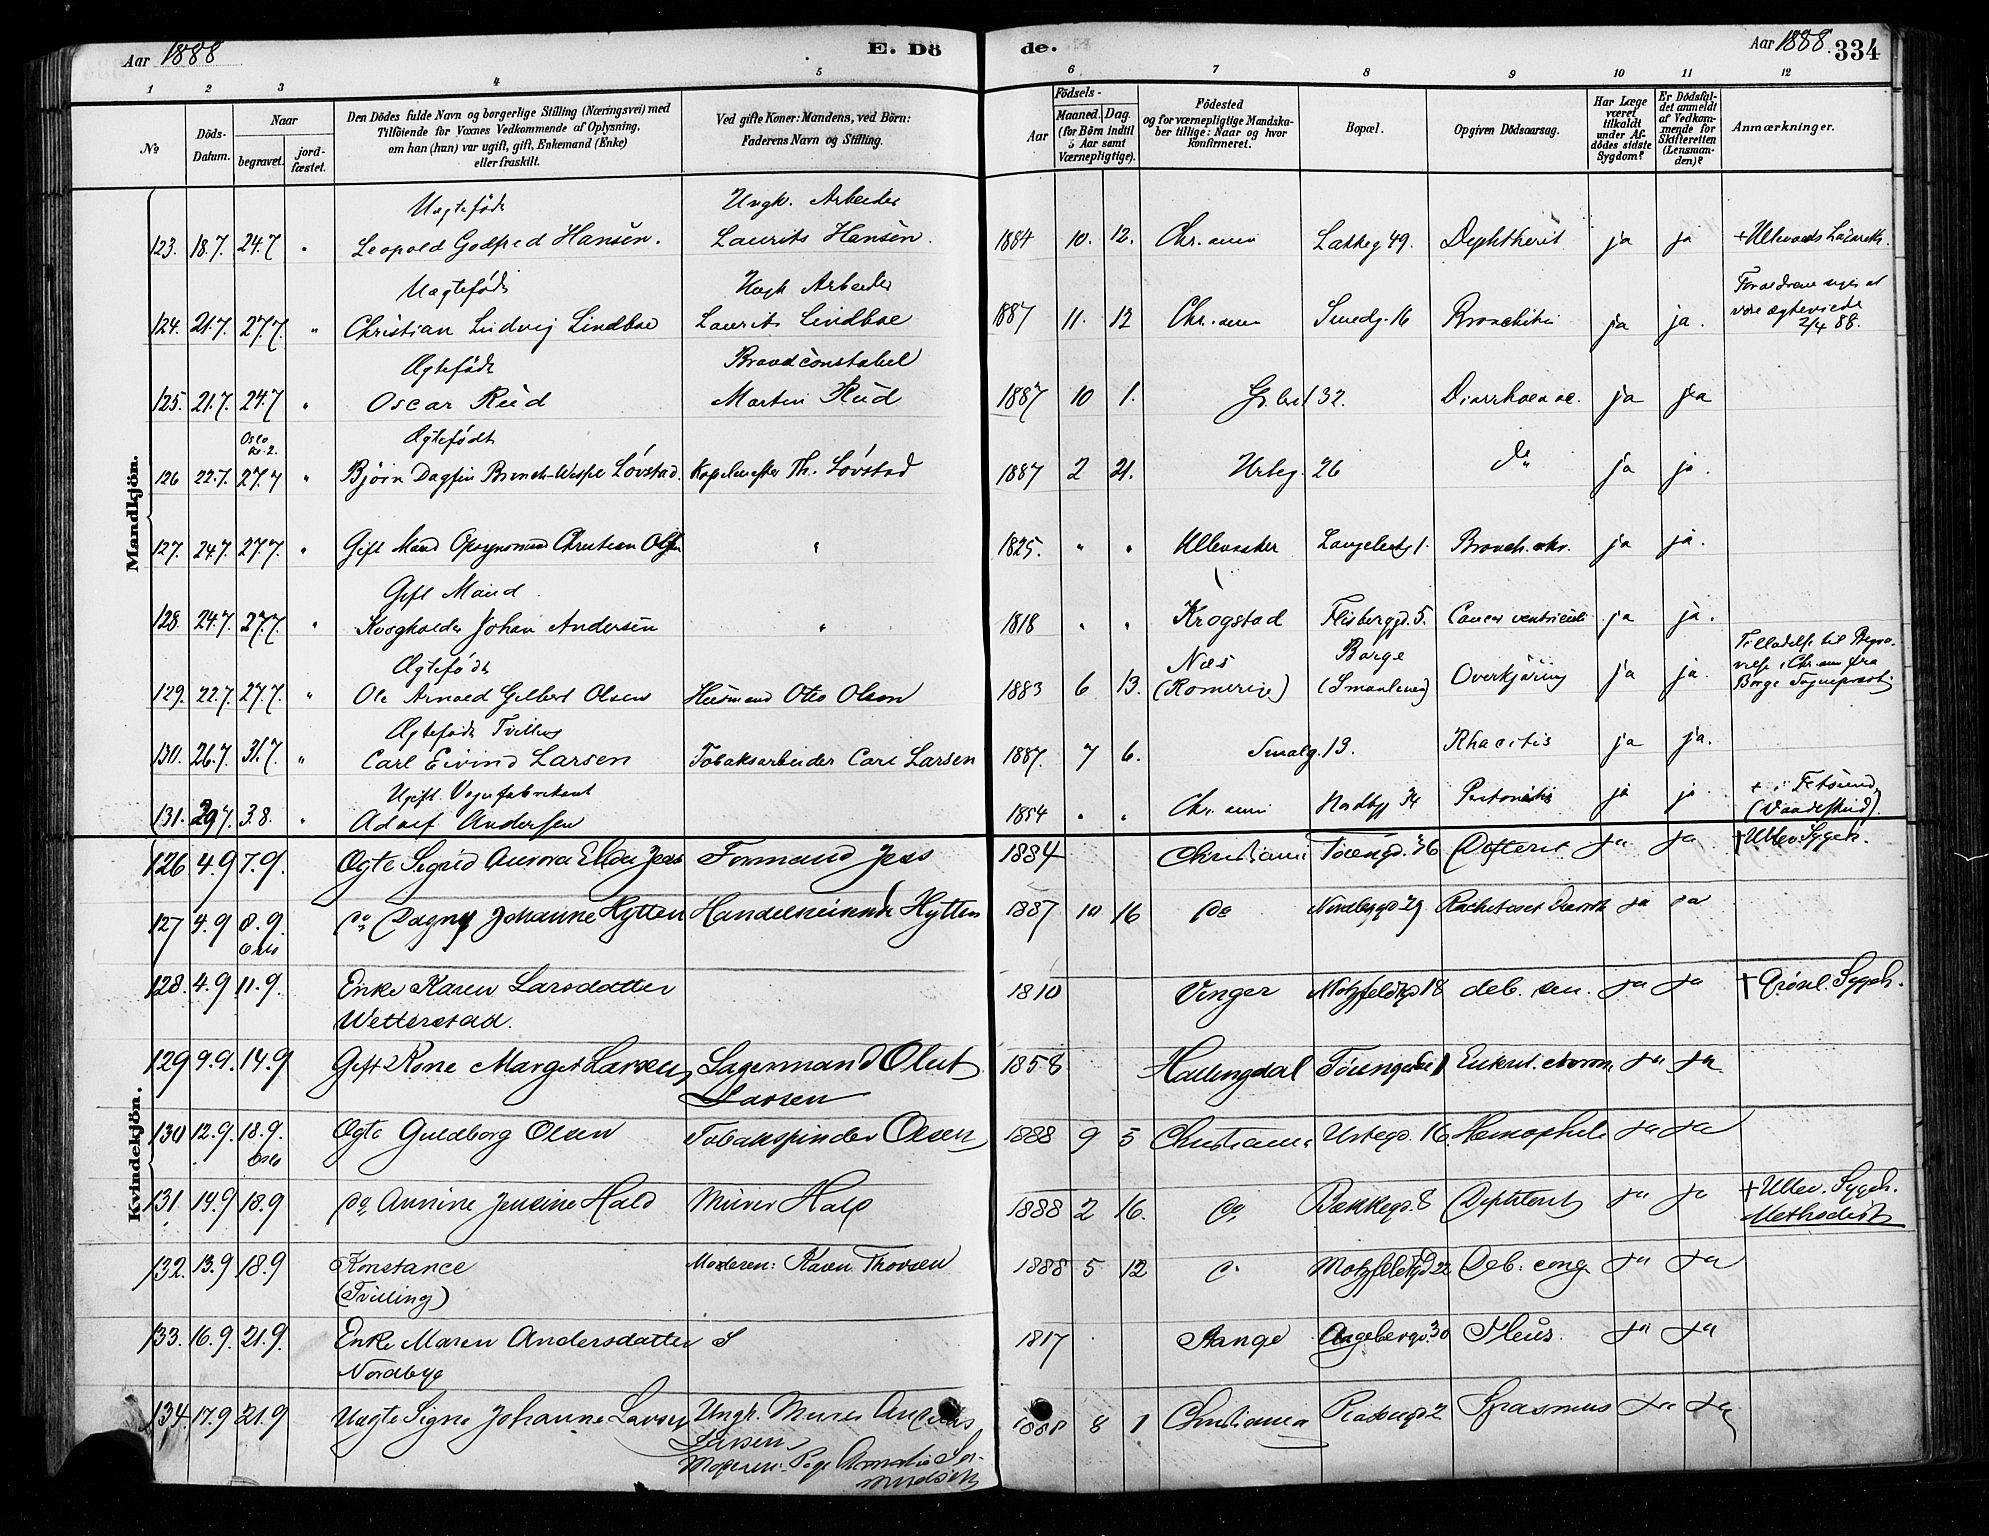 Aar 1888
E. Dö
de.
Aar 1888.
334
1 2 3 4 5 6 7 8 9 10 11 12
No
Döds-Datum.
Naar
begravet.
jord-fæstet.
Den Dödes fulde Navn og borgerlige Stilling (Næringsvei) med
Tilföiende for Voxnes Vedkommende af Oplysning,
om han (hun) var ugift, gift, Enkemand (Enke)
eller fraskilt.
Ved gifte Koner: Mandens, ved Börn:
Faderens Navn og Stilling.
Födsels-
Aar
Maaned. Dag.
(for Börn indtil
5 Aar samt
Værnepligtige).
Födested
og for værnepligtige Mandska-
ber tillige: Naar og hvor
konfirmeret.
Bopæl.
Opgiven Dödsaarsag.
Har Læge
været
tilkaldt
under Af-
dödes sidste
Sygdom?
Er Dödsfal-
det anmeldt
af Vedkom-
mende for
Skifteretten
(Lensman-
den)?
Anmærkninger.
Mandkjön.
Uægtefödt Ungk. Arbeider
123. 18.7. 24.7 " Leopold Godfred Hansen. Laurits Hansen. 1884 10. 12. Chr.ania 49. Dephtherit ja ja + Ullevaals Lazareth.
Uægtefödt Ungk Arbeider
124. 21.7. 27.7. " Christian Ludvig Lindboe Laurits Lindboe 1887 11. 12 Chr.ania Smedg. 16 Bronchitis ja ja. Forældrene siges at
være ægteviede
2/4 88.
Ægtefödt Brandconstabel
125. 21.7. 24.7 " Oscar Rud Martin Rud 1887 10 1. 32. Diarrhoea ac. ja ja
Oslo
Ægtefödt
126 22.7. 27.7 " Björn Dagfin Løvstad. Kapelmester Th. Løvstad 1887 2 21. Urteg. 26 do ja ja.
127. 24.7. 27.7. " Gift Mand Opsynsmand Christian Olsen " 1825. " " Ullensaker Langeleikg 1. Bronch. chr. ja ja.
Gift Mand.
128. 24.7. 27.7. " Kvægholder Johan Andersen " 1818 " " Krogstad Flisberggd. 5. Cancer ventriculi ja ja.
Ægtefödt
129. 22.7. 27.7. " Ole Arnold Gilbert Olsen Huusmand Otto Olson 1883 6 13. Næs
(Romerige) Borge
(Smaalene) Overkjöring ja ja. Tilladelse til Begra-
velse i Chr.ania fra
Borge Sognepræst
Ægtefödt Tvilling
130. 26.7. 31.7. " Carl Eivind Larsen Tobaksarbeider Carl Larsen 1887. 7 6. Smalg. 13. Rhacitis ja ja.
Ugift Vognfabrikant
131. 29.7. 3.8. " Adolf Andersen 1854 " " Chr.ania Nordbyg 34 Peritonitis ja ja + i Fetsund
(Vaadeskud).
Kvindekjön.
126 4.9 7.9. Ægte Sigrid Aurora Elida Jess Formand Jess 1884 Christiania Töiengd. 36 Difterit ja ja + Ullev. Sygeh.
127 3.9 8.9.
Oslo do Dagny Johanne Hytten Hytten 1887 10 16 do Nordbygd 29 ja ja
128. 4.9 11.9. Enke Karen Larsdatter
Wetterstad. 1810 Vinger Motzfeldtgd 18 deb. sen. ja ja + Grönl. Sygeh.
129 9.9. 14.9 Gift Kone Marget Larsen Lagermand Olut
Larsen 1858 Hallingdal ja ja
130 12.9. 18.9.
Oslo Ægte Guldborg Olsen Tobakspinder Olsen 1888 9 5 Christiania Urtegd. 16. Hemophili ja ja
131 14.9 18.9 do Annine Jensine Hald Murer Hald 1888 2 16. do Bakkegd. 8 Diphterit ja ja + Ullev. Sygeh.
Methodist
132. 13.9 18.9 Konstance
(Tvilling) Moderen: Karen Thorsen 1888 5 12 do Motzfeldtgd 22 Deb. cong. ja ja
133. 16.9. 21.9. Enke Maren Andersdatter
Nordbye 1817 Stange 30 Ileus. ja ja
134. 17.9 21.9 Uægte Signe Johanne Larsen Ungk. Murer
Larsen
Moderen: Pige 1888 8 1 Christiania 2 Spasmus ja ja